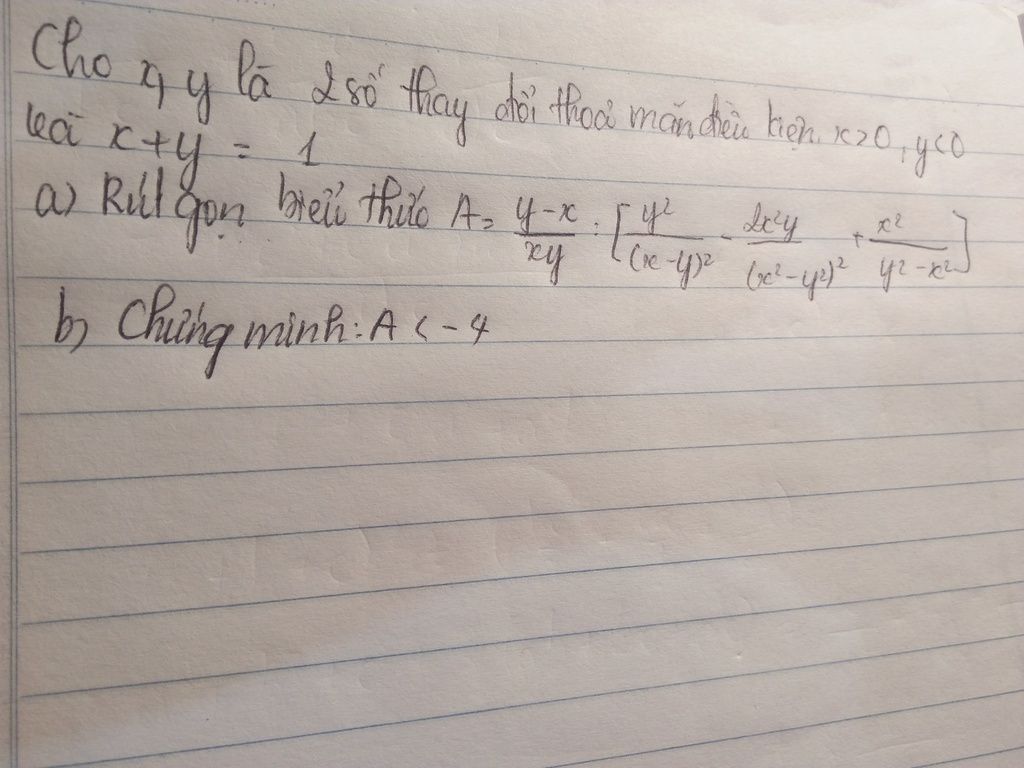 Cho x, y là 2 số thay đổi thoả mãn điều kiện x>0, y<0
và x+y = 1
a) Rút gọn biểu thức A = \frac{y-x}{xy} : [\frac{y^2}{(x-y)^2} - \frac{2x^2y}{(x^2-y^2)^2} + \frac{x^2}{y^2-x^2}]
b) Chứng minh: A < -4